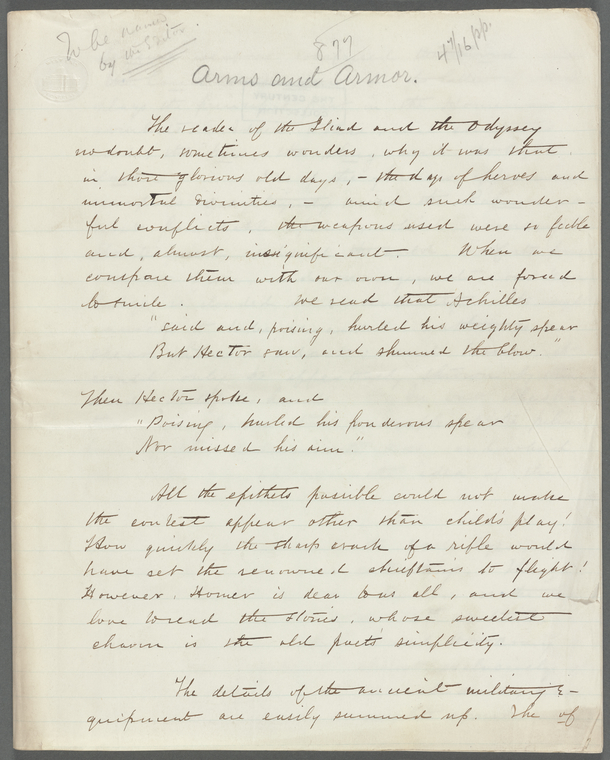 To be named
by the Editor
877
47/16 pp.
Arms and Armor.
The reader of the Iliad and the Odyssey
no doubt, sometimes wonders, why it was that
in those glorious old days, – the days of heroes and
immortal divinities, – amid such wonder-
ful conflicts, the weapons used were so feeble
and, almost, insignificant. When we
compare them with our own, we are forced
to smile. We read that Achilles
"said and, poising, hurled his weighty spear
But Hector saw, and shunned the blow."
Then Hector spoke, and
"Poising, hurled his ponderous spear
Nor missed his aim."
All the epithets possible could not make
the contest appear other than child's play!
How quickly the sharp crack of a rifle would
have set the renowned chieftains to flight!
However, Homer is dear to us all, and we
love to read the stories, whose sweetest
charm is the old poet's simplicity.
The details of the ancient military e-
quipment are easily summed up. The of